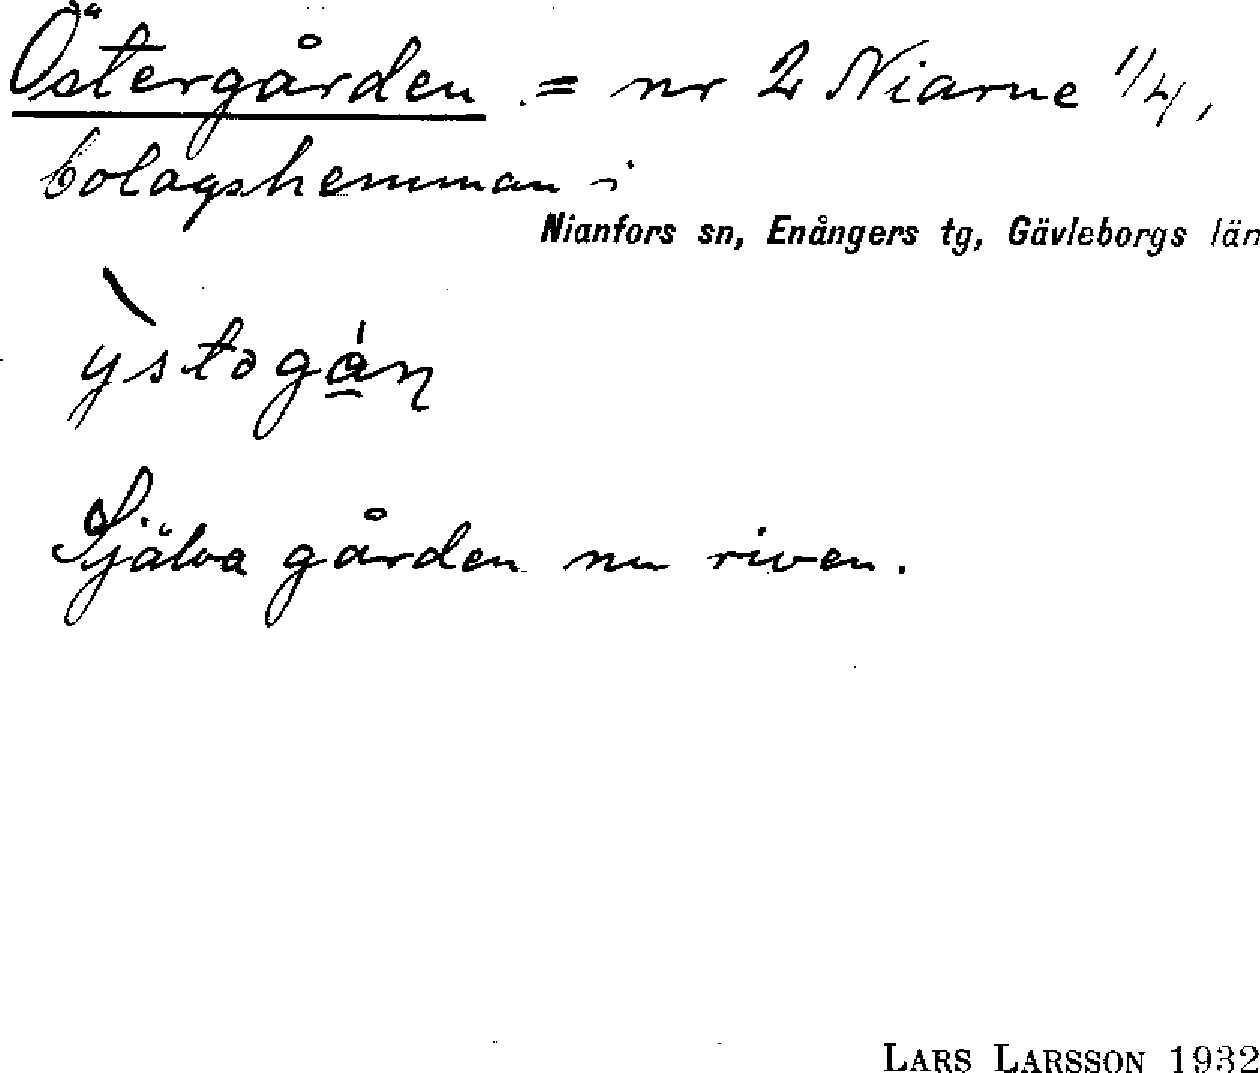 Östergården = nr 2 Niarne 1/4,
bolagshemman i
Nianfors sn, Enångers tg, Gävleborgs län
Själva gården nu riven.
LARS LARSSON 1932